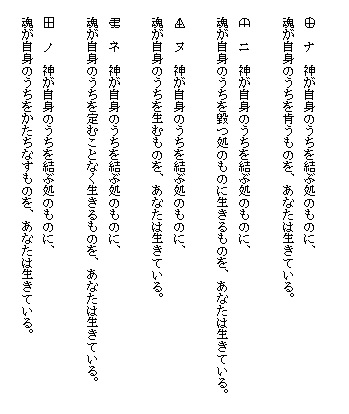 ナ　神が自身のうちを結ぶ処のものに、
魂が自身のうちを肯うものを、あなたは生きている。
ニ　神が自身のうちを結ぶ処のものに、
魂が自身のうちを毀つ処のものに生きるものを、あなたは生きている。
ヌ　神が自身のうちを結ぶ処のものに、
魂が自身のうちを生むものを、あなたは生きている。
ネ　神が自身のうちを結ぶ処のものに、
魂が自身のうちを定むことなく生きるものを、あなたは生きている。
田　ノ　神が自身のうちを結ぶ処のものに、
魂が自身のうちをかたちなすものを、あなたは生きている。